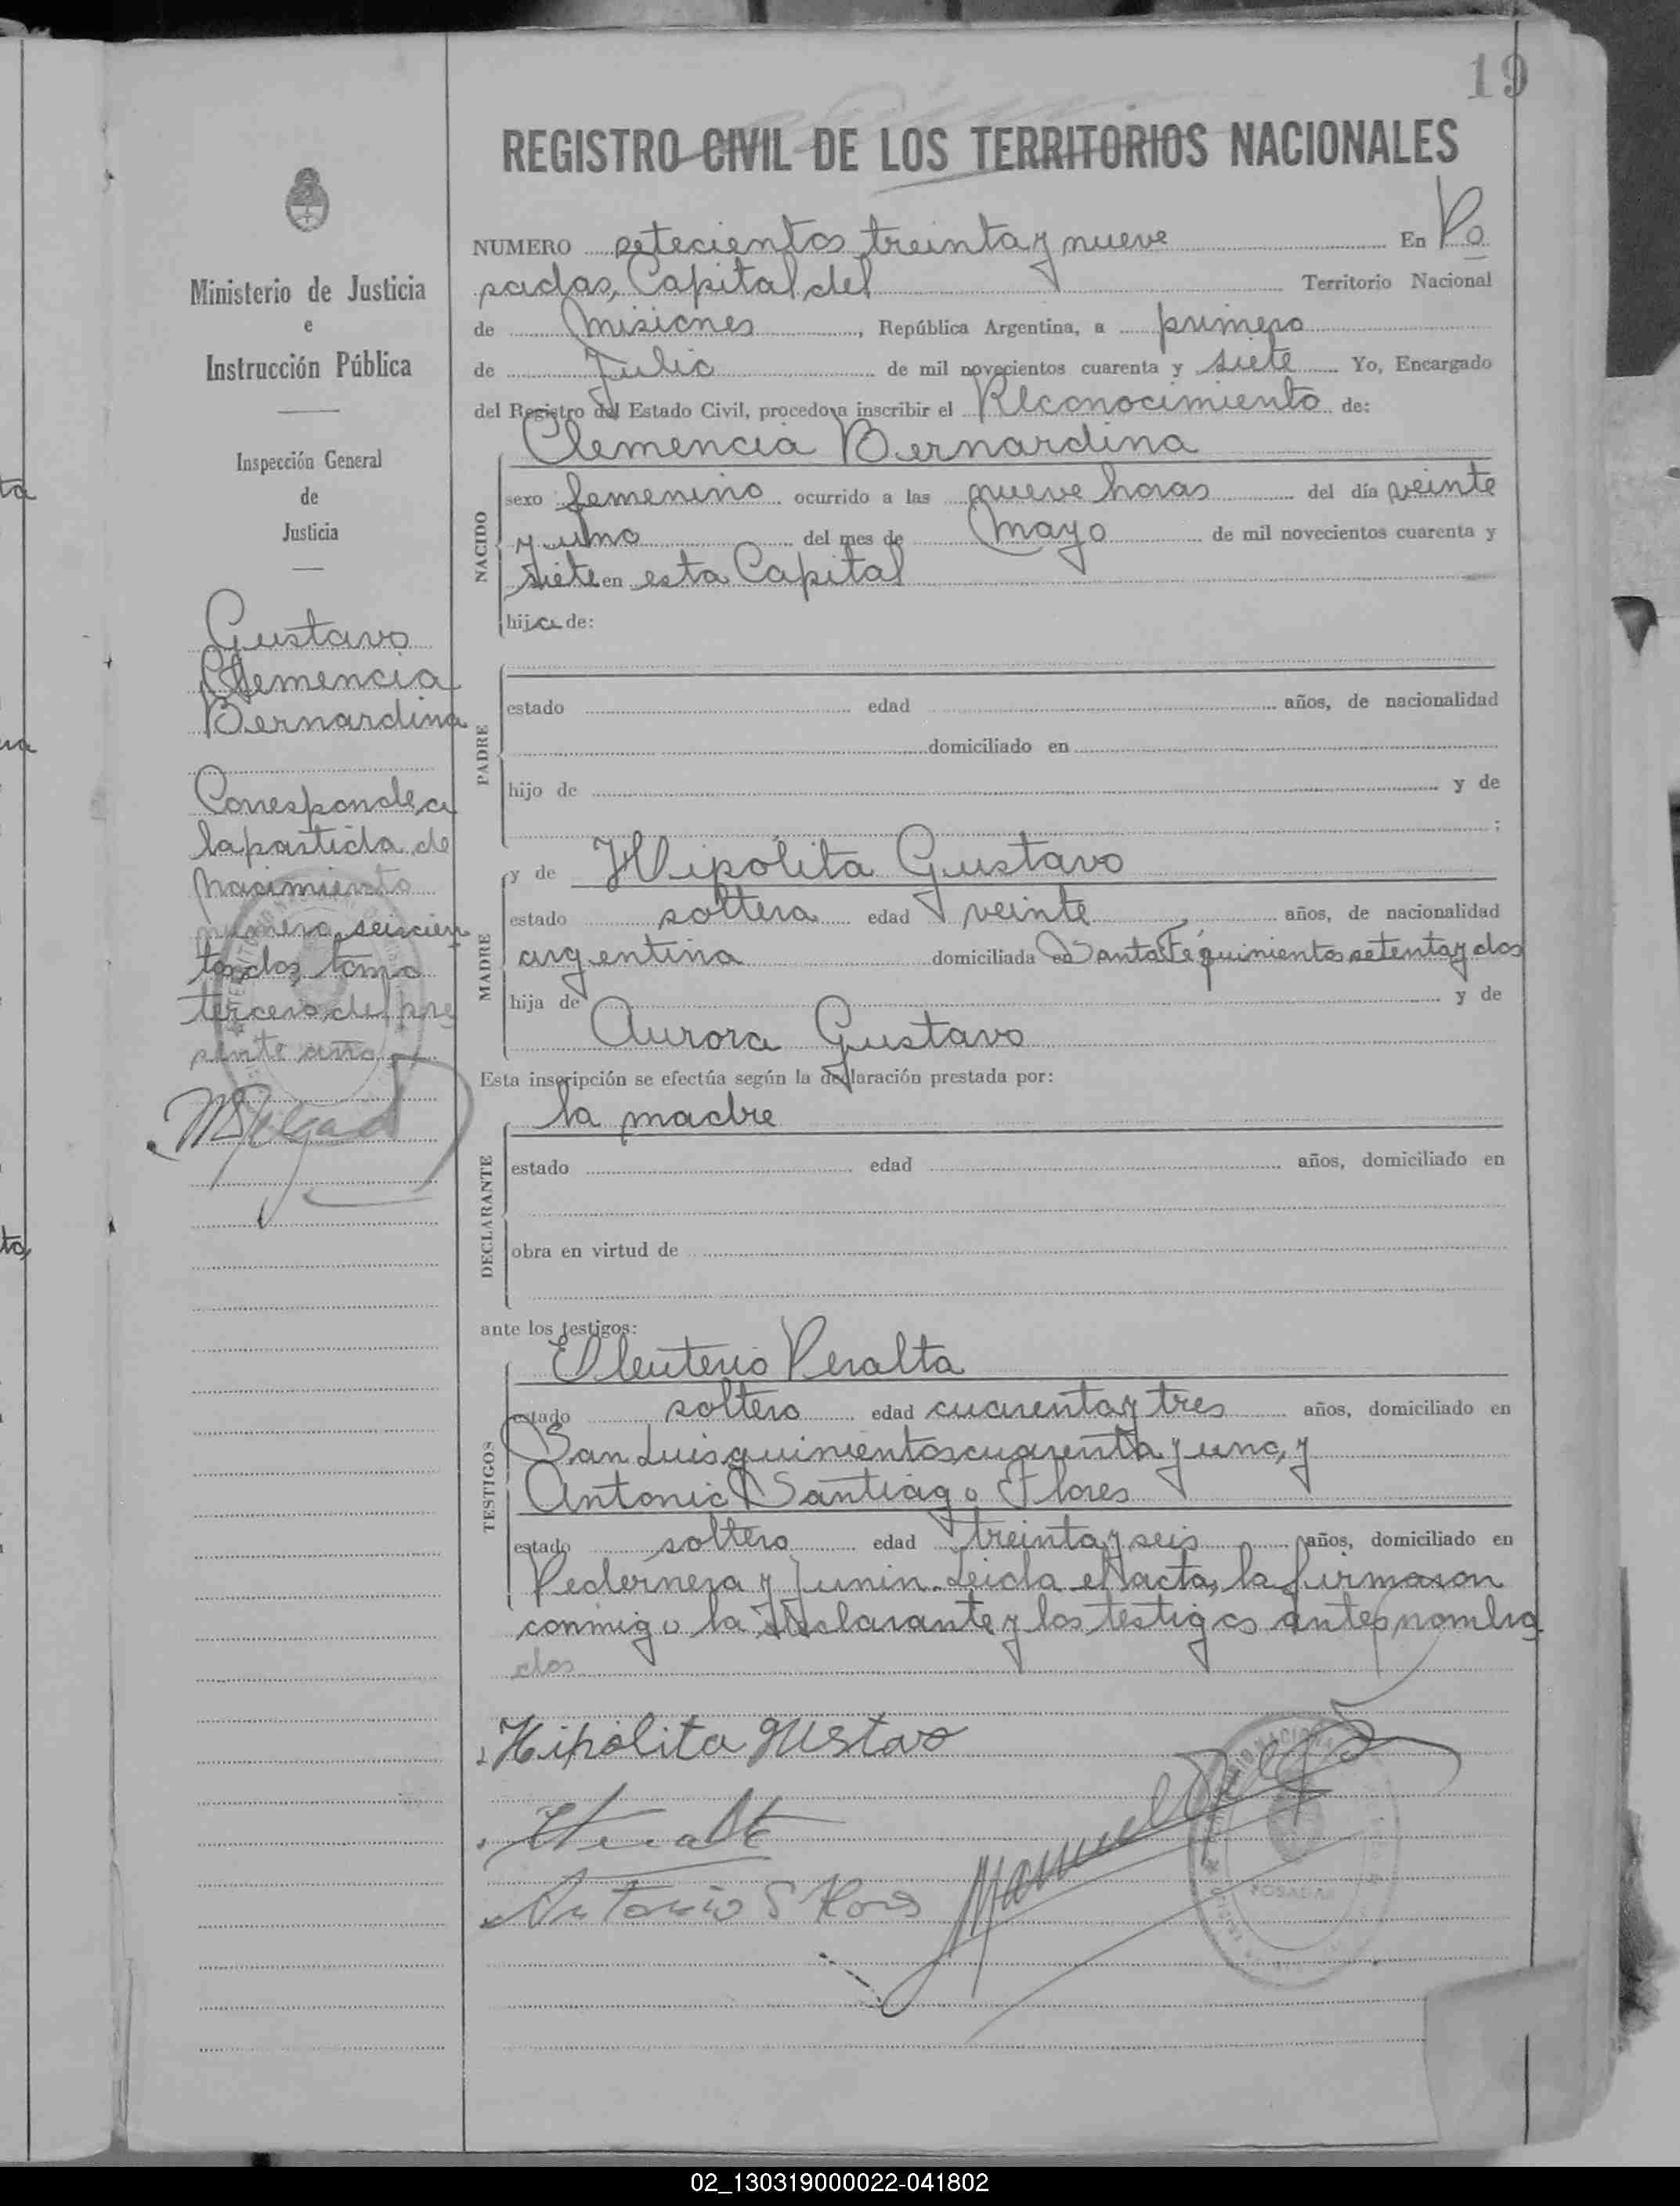 19
REGISTRO CIVIL DE LOS TERRITORIOS NACIONALES
Ministerio de Justicia
e
Instrucción Pública
Inspección General
de
Justicia
Gustavo
Clemencia
Bernardina
Corresponde a
la partida de
nacimiento
número seiscien
tos dos, tomo
tercero del pre
sente año
NUMERO setecientos treinta y nueve En Po
sadas, Capital del Territorio Nacional
de Misiones, República Argentina, a primero
de Julio de mil novecientos cuarenta y siete Yo, Encargado
del Registro del Estado Civil, procedo a inscribir el Reconocimiento de:
NACIDO
Clemencia Bernardina
sexo femenino ocurrido a las nueve horas del día veinte
y uno del mes de Mayo de mil novecientos cuarenta y
siete en esta Capital
hija de:
PADRE
estado edad años, de nacionalidad
domiciliado en
hijo de y de
;
MADRE
y de Hipólita Gustavo
estado soltera edad veinte años, de nacionalidad
argentina domiciliada en Santa Fé quinientos setenta y dos
hija de y de
Aurora Gustavo
Esta inscripción se efectúa según la declaración prestada por:
DECLARANTE
la madre
estado edad años, domiciliado en
obra en virtud de
ante los testigos:
TESTIGOS
Eleuterio Peralta
estado soltero edad cuarenta y tres años, domiciliado en
San Luis quinientos cuarenta y uno, y
Antonio Santiago Flores
estado soltero edad treinta y seis años, domiciliado en
Pedernera y Junin. Leida el acta, la firmaron
conmigo la declarante y los testigos antes nombra
dos
Hipólita Gustavo
Antonio S Flores
Manuel
POSADAS
02_130319000022-041802